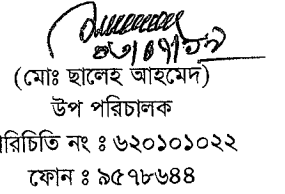 (মোঃ ছালেহ আহমেদ)
উপ পরিচালক
রিচিতি নং ঃ ৬২০১০১০২২
ফোন ঃ ৯৫৭৮৬৪৪